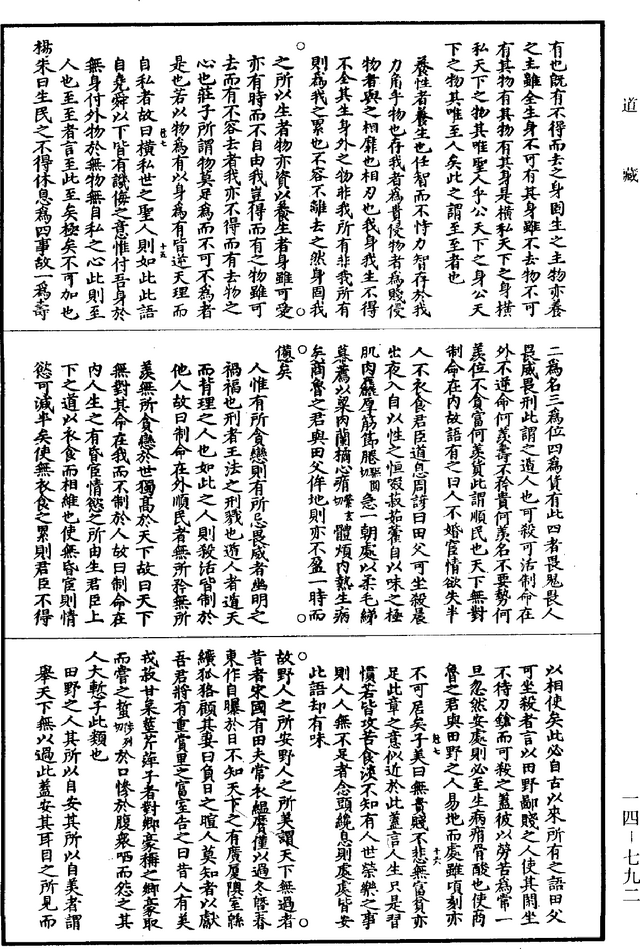 道藏
有也既有不得而去之身固生之主物亦養
之主雖全生身不可有其身雖不去物不可
有其物有其物有其身是橫私天下之身橫
私天下之物其唯聖人乎公天下之身公天
下之物其唯至人矣此之謂至至者也
養性者養生也任智而不恃力智存於我
力角乎物也存我者為貴侵物者為賤侵
物者與之相靡也相刃也我身我生不得
不全其生身外之物非我所有非我所有
則為我之累也不容不離去之然身固我
之所以生者物亦資以養生者身雖可愛
亦有時而不自由我豈得而有之物雖可
去而有不容去者我亦不得而有去物之
心也莊子所謂物莫足為而不可不為者
是也若以物為有以身為有皆逆天理而
自私者故曰橫私世之聖人則如此此語
自堯舜以下皆有譏侮之意惟付吾身於
無身付外物於無物無自私之心此則至
人也至至者言至此至矣極矣不可加也
楊朱曰生民之不得休息為四事故一為壽
二為名三為位四為貨有此四者畏鬼畏人
畏威畏刑此謂之遁人也可殺可活制命在
外不逆命何羨壽不矜貴何羨名不要勢何
羨位不貪富何羨貨此謂順民也天下無對
制命在內故語有之曰人不婚宦情欲失半
人不衣食君臣道息周諺曰田父可坐殺晨
出夜入自以性之恒啜菽茹藿自以味之極
肌肉麤厚筋節腃急一朝處以柔毛綈
幕薦以粱肉蘭橘心㾓體煩內熱生病
矣商魯之君與田父侔地則亦不盈一時而
憊矣
人惟有所貪戀則有所忌畏威者幽明之
禍福也刑者王法之刑戮也遁人者遁天
而背理之人也如此之人則殺活皆制於
他人故曰制命在外順民者無所矜無所
羨無所貪戀於世獨高於天下故曰天下
無對其命在我而不制於人故曰制命在
內人生之有昏宦情慾之所由生君臣上
下之道以衣食而相維也使無昏宦則情
慾可減半矣使無衣食之累則君臣不得
以相使矣此必自古以來所有之語田父
可坐殺者言以田野鄙賤之人使其閒坐
不待刀鎗而可殺之蓋彼以勞苦為常一
旦忽然安處則必至生病㾓骨酸也使商
魯之君與田野之人易地而處雖頃刻亦
不可居矣子美曰無貴賤不悲無富貧亦
足此章之意似近於此蓋言人生只是習
慣若皆攻苦食淡不知有人世榮樂之事
則人人無不足者念頭纔息則處處皆安
此語却有味
故野人之所安野人之所美謂天下無過者
昔者宋國有田夫常衣縕黂僅以過冬暨春
東作自曝於日不知天下之有廣廈隩室緜
纊狐狢顧其妻曰負日之暄人莫知者以獻
吾君將有重賞里之富室告之曰昔人有美
戎菽甘枲莖芹萍子者對鄉豪稱之鄉豪取
而嘗之蜇於口慘於腹衆哂而怨之其
人大慙子此類也
田野之人其所以自安其所以自美者謂
舉天下無以過此蓋安其耳目之所見而
一四－七九二